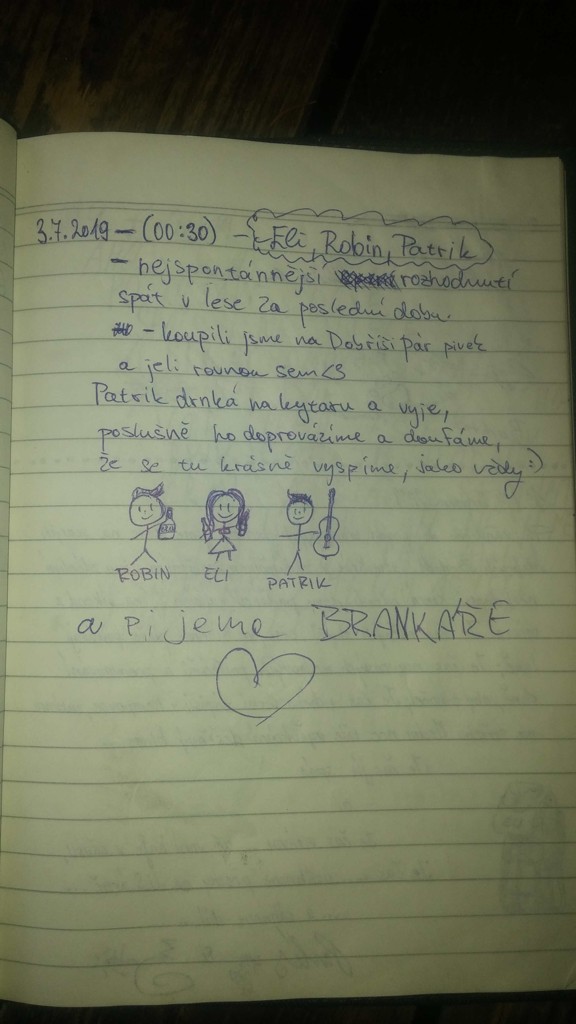 3.7.2019 - (00:30) - Eli, Robin, Patrik
- nejspontánnější rozhodnutí
spát v lese za poslední dobu.
- koupili jsme na Dobříši pár pivek
a jeli rovnou sem <3
Patrik drnká na kytaru a vyje,
poslušně ho doprovázíme a doufáme,
že se tu krásně vyspíme, jako vždy :)
ROBIN ELI PATRIK
a pijeme BRANKÁŘE